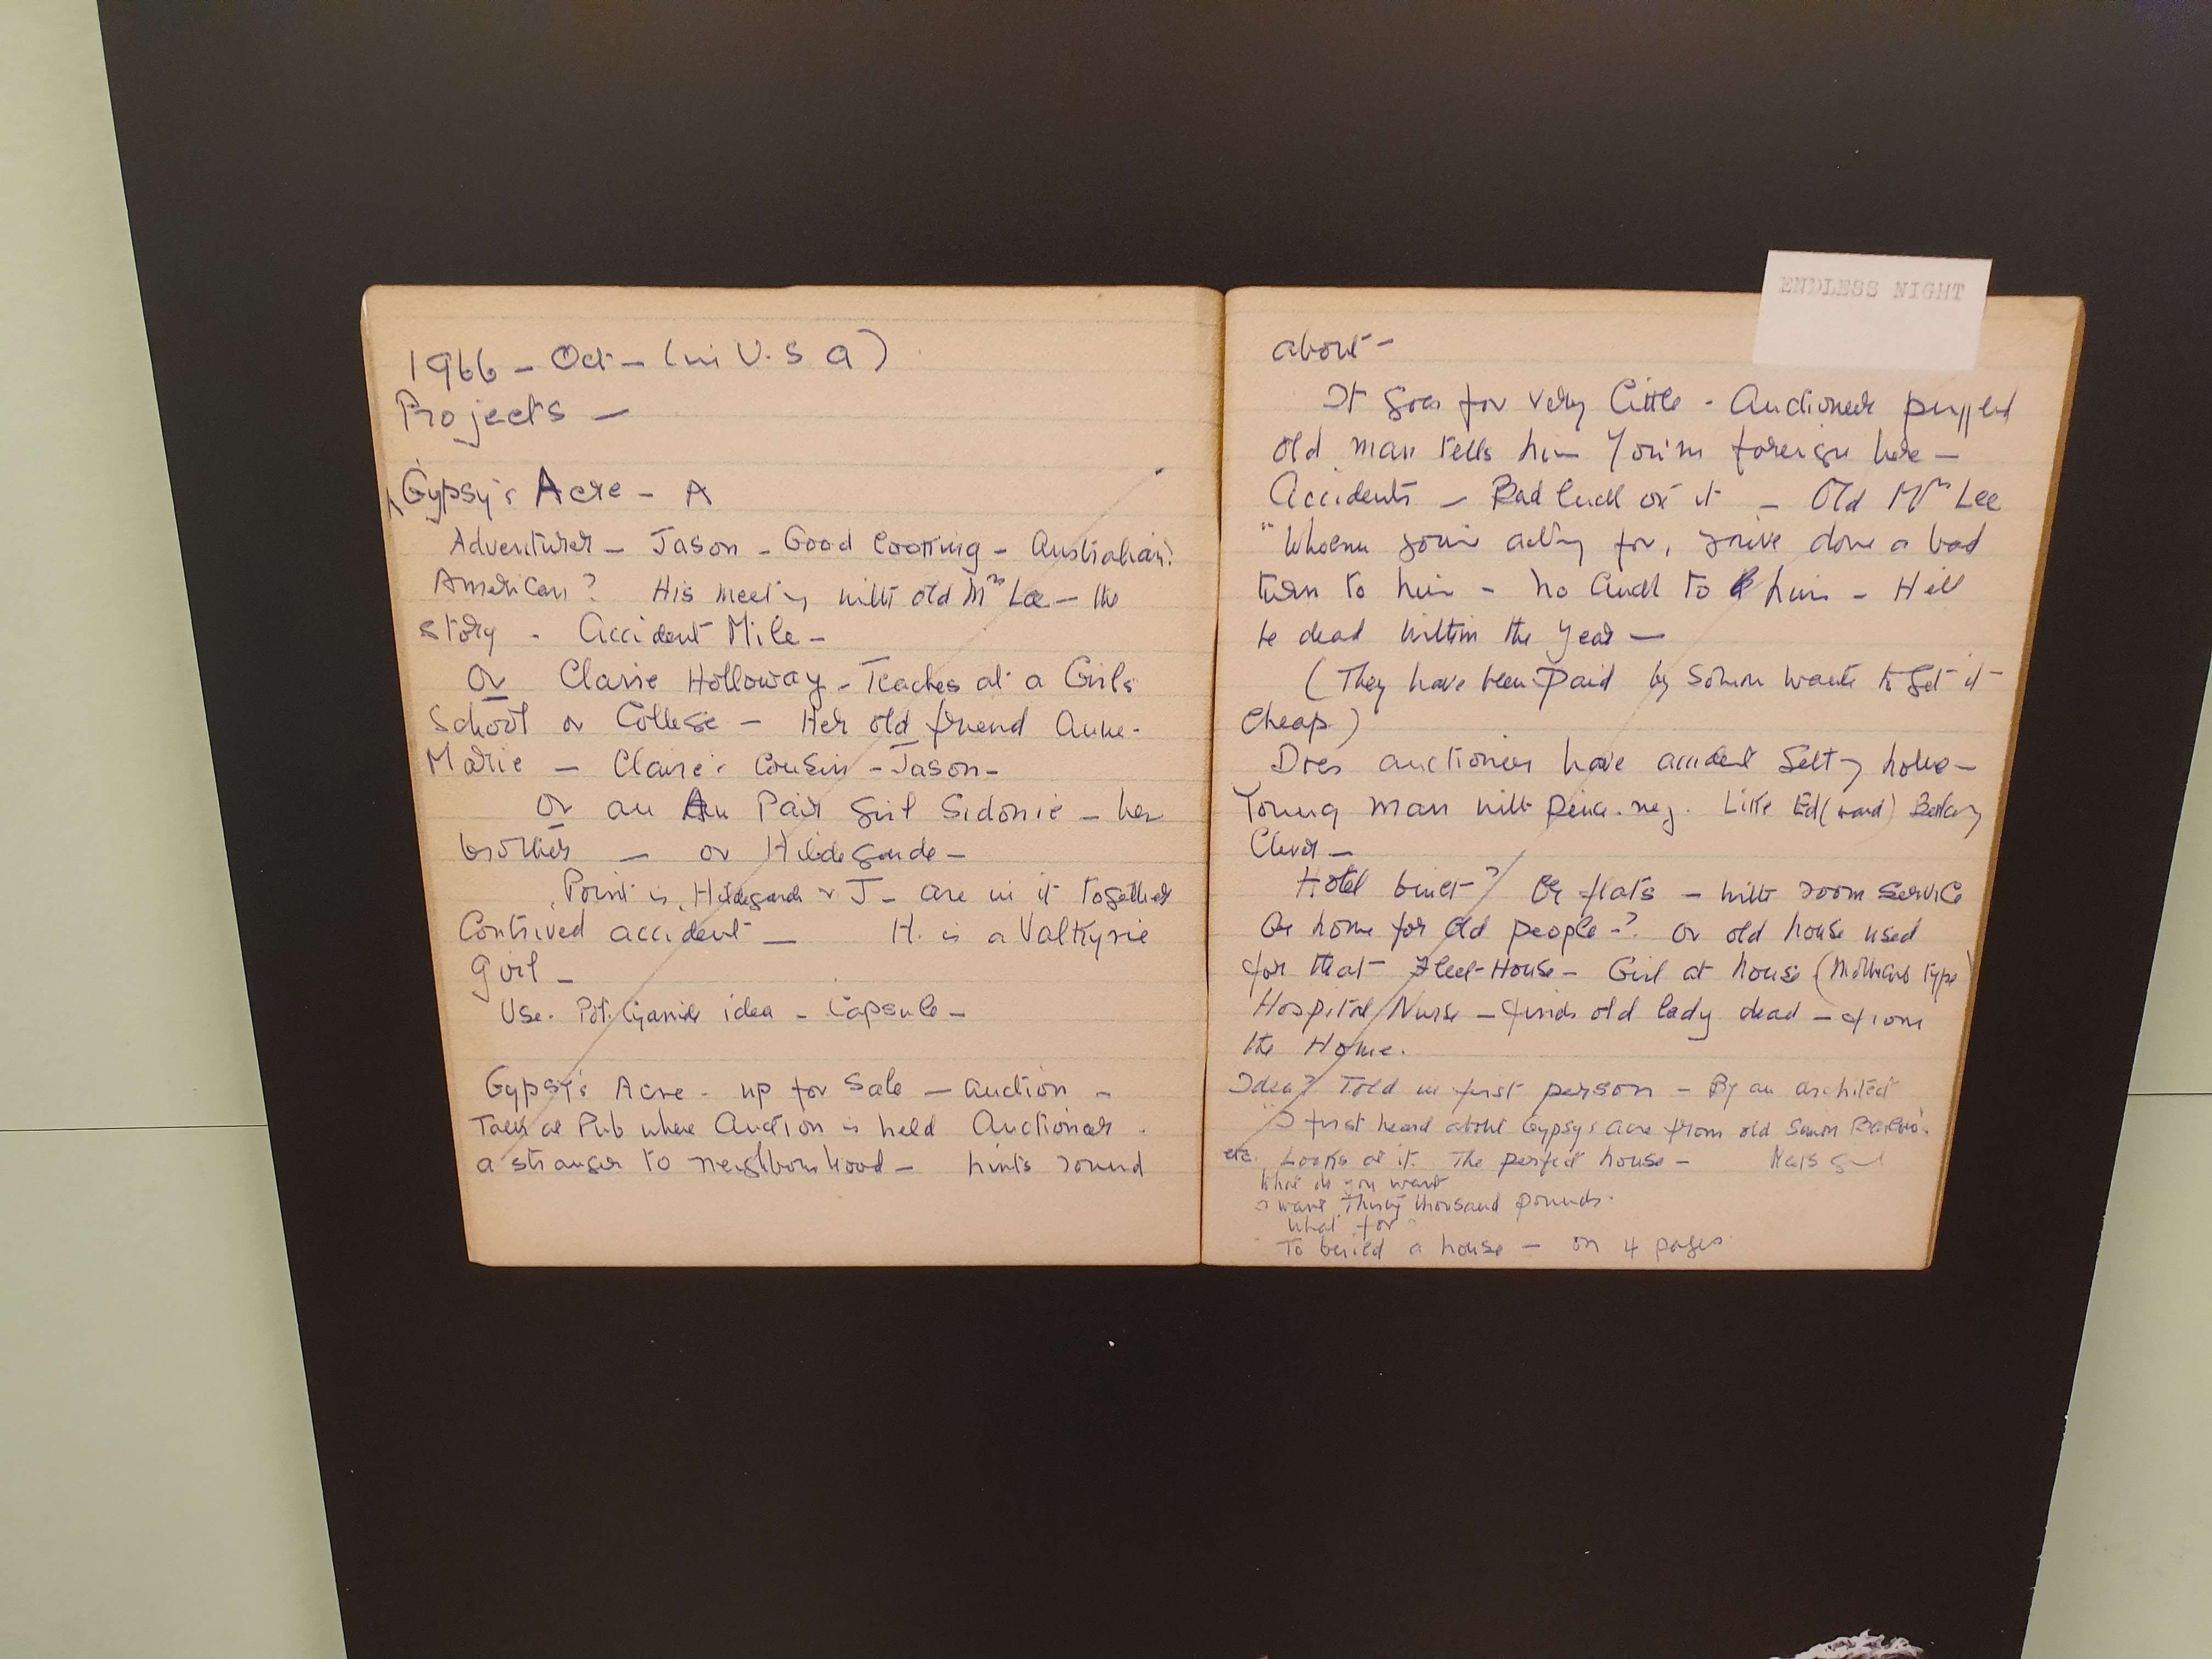 1966 - Oct - (in U.S A)
Projects -
Gypsy's Acre - A
Adventurer - Jason - Good looking - Australian?
American? His meeting with old Mrs Lee - the
story - Accident Mile -
Or Claire Holloway - Teaches at a Girls
School or College - Her old friend Anne-
Marie - Claire's Cousin - Jason -
Or an Au Pair girl Sidonie - her
brother - or Hildegarde -
Point is, Hildegarde & J - are in it together
Contrived accident - H. is a Valkyrie
girl -
Use. Pot. Cyanide idea - Capsule -
Gypsy's Acre - up for sale - auction -
Talk at Pub where Auction is held Auctioneer -
a stranger to neighbourhood - hints round
ENDLESS NIGHT
about -
It goes for very little - Auctioneer puzzled
old man tells him You'm foreign here -
Accidents - Bad luck on it - Old Mrs Lee
"Whoever you're acting for, you've done a bad
turn to him - no luck to him - He'll
be dead within the year -
(They have been paid by someone wants to get it
cheap)
Does auctioneer have accident Selling house -
Young man with
Clever -
Hotel built? Or flats - with room service
Or home for old people -? or old house used
for that Fleet-House - Girl at house (Mothers type)
Hospital Nurse - finds old lady dead - from
the Home.
Idea? Told in first person - By an architect
"I first heard about Gypsy's acre from old Simon
etc. Looks at it. The perfect house - Meets girl
What do you want
I want Thirty thousand pounds.
What for
To build a house - on 4 pages